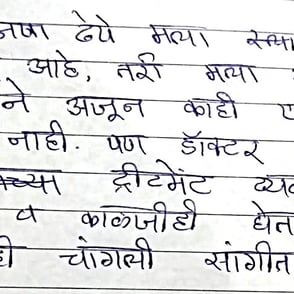 ठेपे मला
आहे, तरी मला
ने अजून काही ए
नाही. पण डॉक्टर
ट्रीटमेंट व्यव
व काळजीही घेत
ही चांगली सांगीत